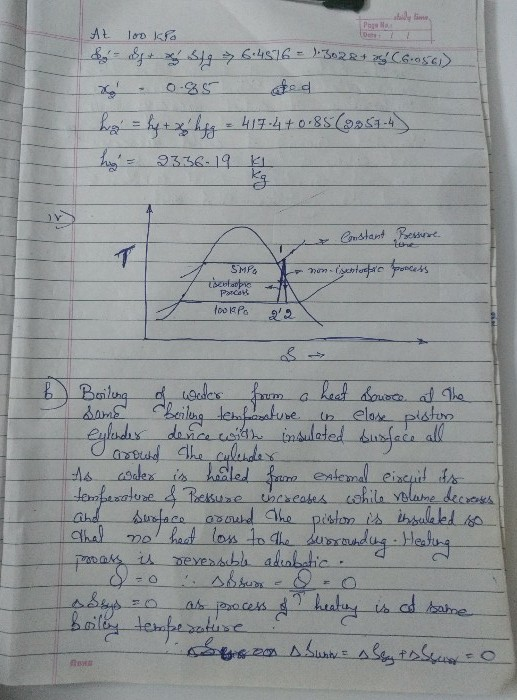 daily time
Page No.:
Date: / /
At 100 kPa
S2' = Sf + x2' Sfg ⇒ 6.4576 = 1.3028 + x2' (6.0561)
x2' = 0.85
h2' = hf + x2' hfg = 417.4 + 0.85 (2257.4)
h2' = 2336.19 kJ/kg
iv)
T
1
Constant Pressure line
5MPa
non-isentropic process
isentropic process
100 KPa
2' 2
S →
b) Boiling of water from a heat source at the
same boiling temperature in close piston
cylinder device with insulated surface all
around the cylinder
As water is heated from external circuit its
temperature & Pressure increases while volume decreases
and surface around the piston is insulated so
that no heat loss to the surrounding. Heating
process is reversible adiabatic.
Q = 0 ∴ ΔSsurr = Q/T = 0
ΔSsys = 0 as process of heating is at same
boiling temperature
ΔSuniv = ΔSsys + ΔSsurr = 0